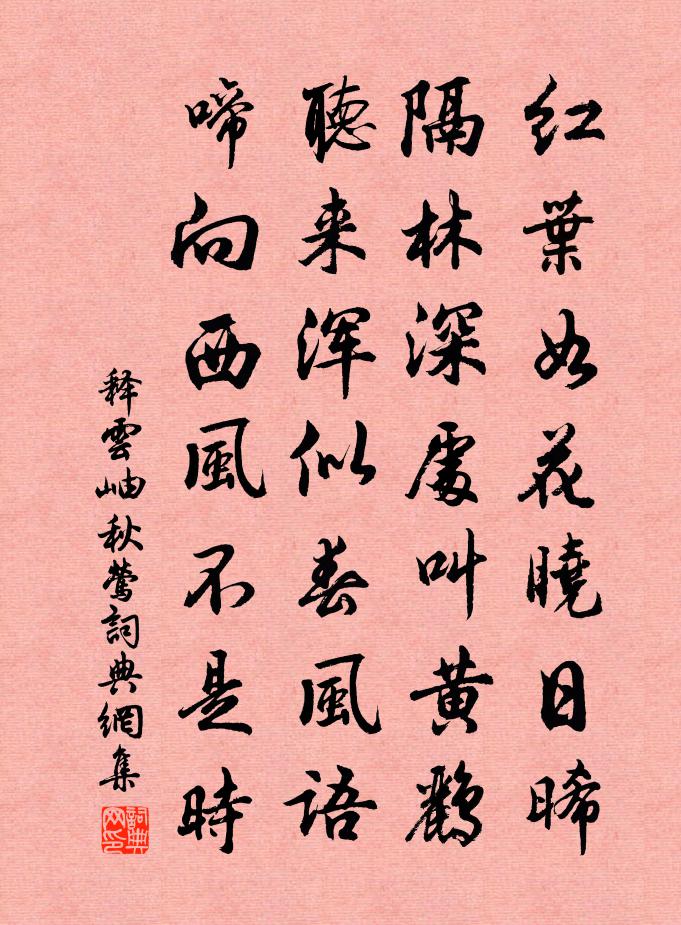 红葉如花曉日晞
隔林深處叫黄鸝
聽来渾似春風語
啼向西風不是時
释雲岫秋鶯詞典網集
詞典网印